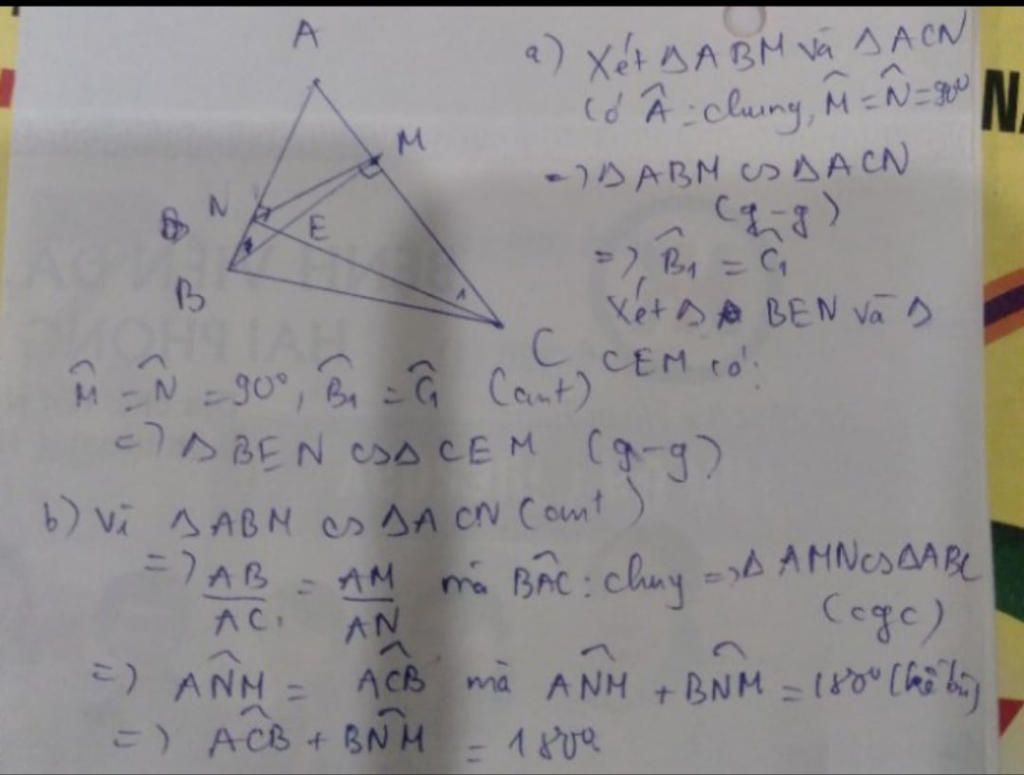 A
M
N
E
B
1
C
a) Xét ΔABM và ΔACN
Có Â: chung, M̂ = N̂ = 90°
=> ΔABM ∽ ΔACN
(g-g)
=> B̂₁ = Ĉ₁
Xét Δ BEN và Δ
CEM có:
M̂ = N̂ = 90°, B̂₁ = Ĉ₁ (cmt)
=> ΔBEN ∽ ΔCEM (g-g)
b) Vì ΔABM ∽ ΔACN (cmt)
=> AB/AC = AM/AN mà BÂC: chung => ΔAMN ∽ ΔABC
(cgc)
=> AN̂M = AĈB mà AN̂M + BN̂M = 180° (kề bù)
=> AĈB + BN̂M = 180°